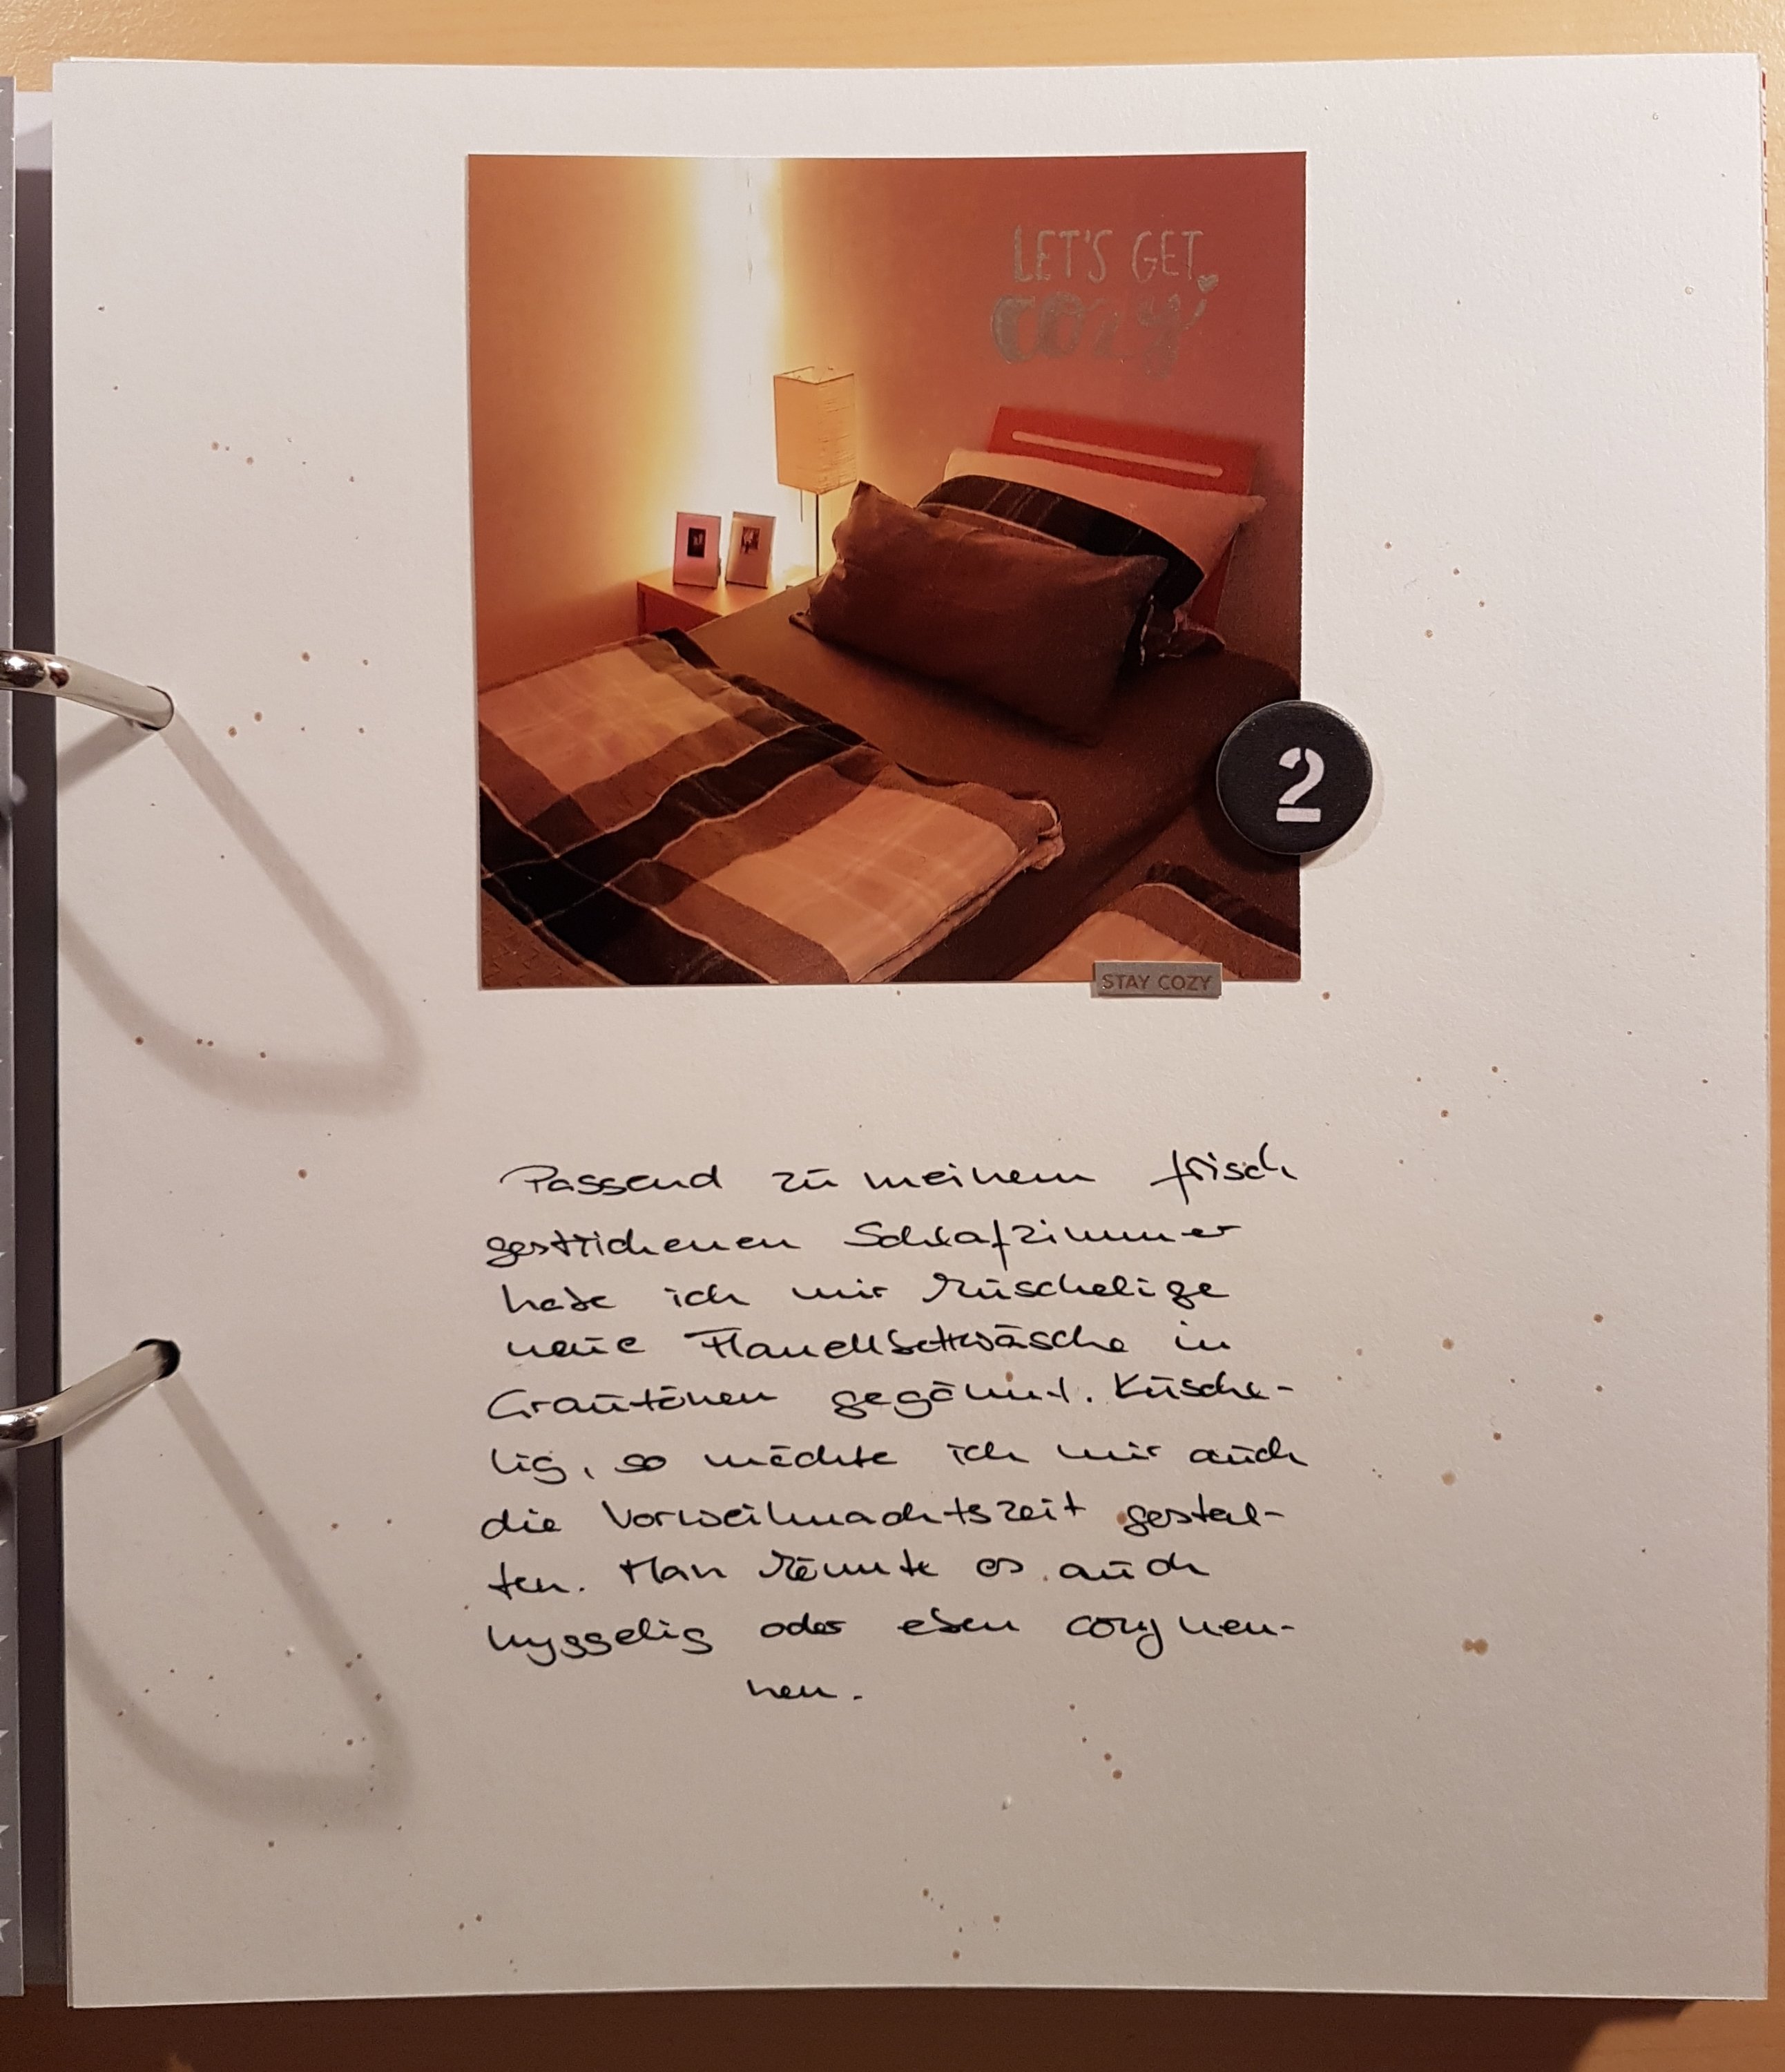 LET'S GET
cozy
2
STAY COZY
Passend zu meinem frisch
gestrichenen Schlafzimmer
habe ich mir kuschelige
neue Flanellbettwäsche in
Grautönen gegönnt. Kusche-
lig, so möchte ich mir auch
die Vorweihnachtszeit gestal-
ten. Man könnte es auch
hyggelig oder eben cozy nen-
nen.